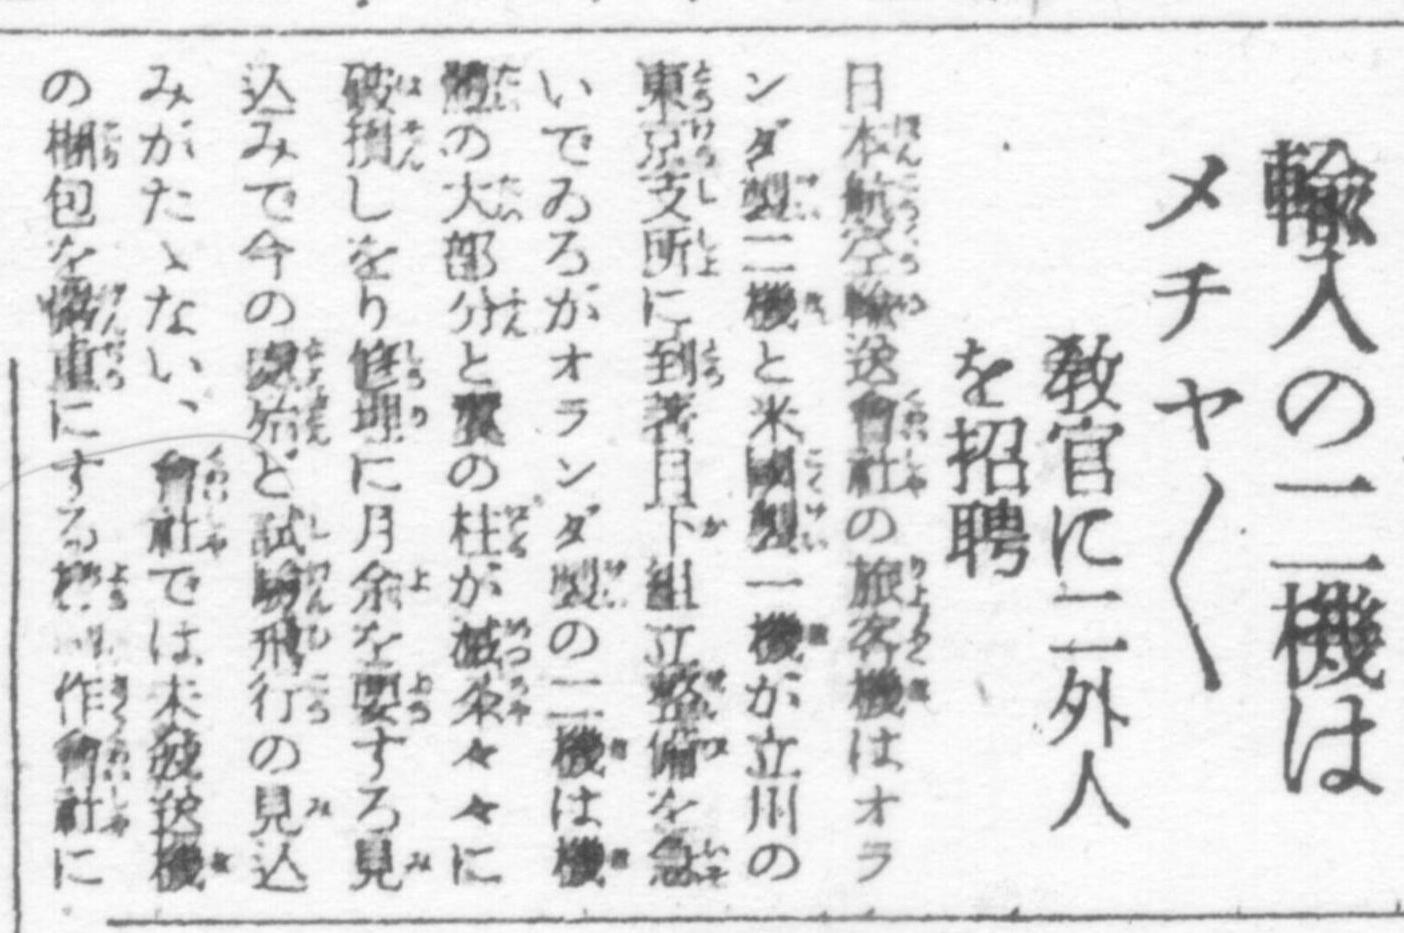 輸入の二機は
メチヤ〱
教官に二外人
を招聘
日本航空輸送會社の旅客機はオラ
ンダ製二機と米國製一機が立川の
東京支所に到著目下組立整備を急
いでゐるがオランダ製の二機は機
體の大部分と翼の柱が滅茶々々に
破損しをり修理に月余を要する見
込みで今の處殆ど試験飛行の見込
みがたゝない、會社では未發送機
の梱包を愼重にする様 作會社に